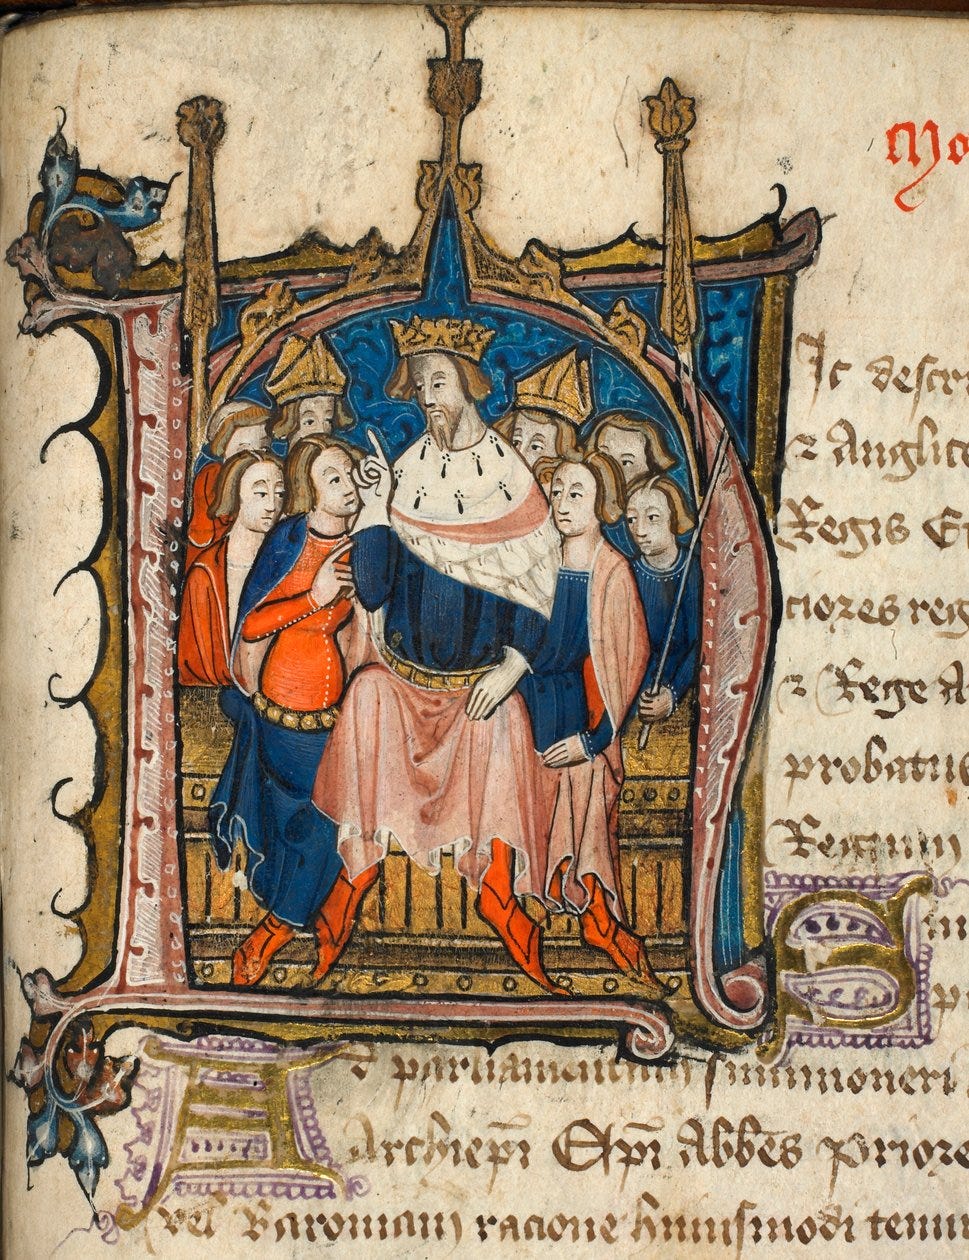 Mo
Hic descri
⁊ Anglico
Regis Et
ciores reg
⁊ Rege A
probatus
Regnum
S
p
Ad parliamentum summoneri
Archiep̄i Ep̄i Abb̄es Priore
vel Baroniam racione huiusmodi tenur